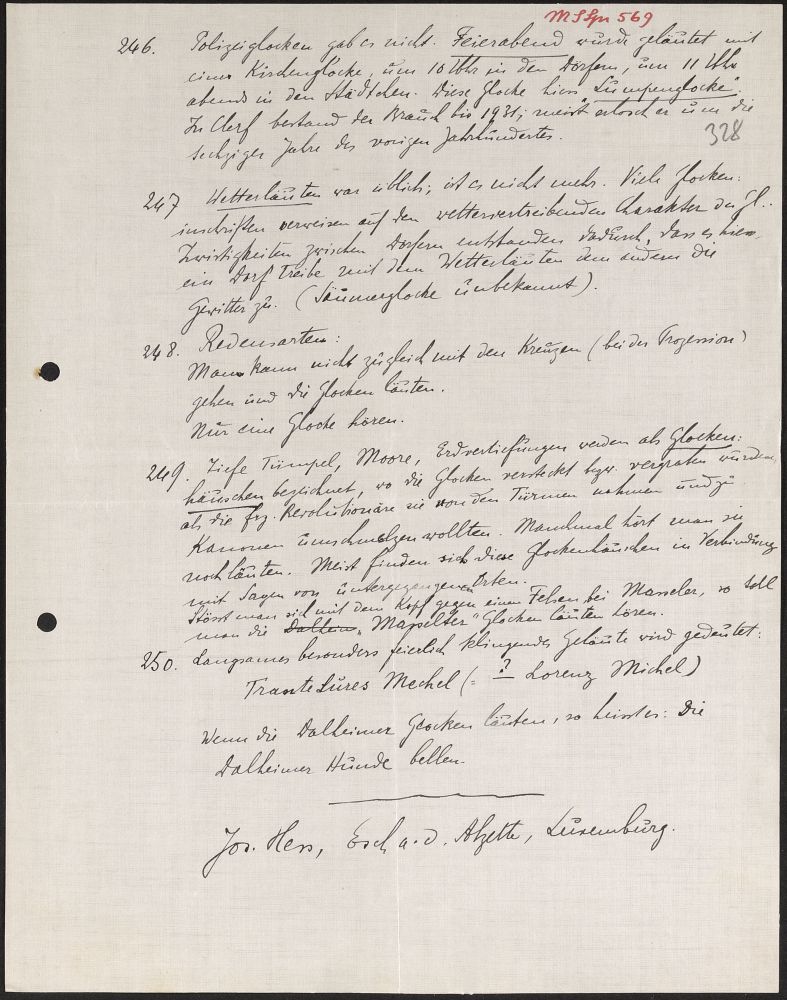 MSLpn 569
246. Polizeiglocken gab es nicht. Feierabend wurde geläutet mit
einer Kirchenglocke, um 10 Uhr in den Dörfern, um 11 Uhr
abends in den Städtchen. Diese Glocke hiess "Lumpenglocke".
In Clerf bestand der Brauch bis 1931; meist erlosch er um die
328
sechziger Jahre des vorigen Jahrhundertes.
247 Wetterläuten war üblich; ist es nicht mehr. Viele Glocken:
inschriften verweisen auf den wettervertreibenden Charakter der Gl.
Zwistigkeiten zwischen Dörfern entstanden dadurch, dass es hiess
ein Dorf treibe mit dem Wetterläuten dem andern die
Gewitter zu. (Säumerglocke unbekannt).
248. Redensarten:
Man kann nicht zugleich mit den Kreuzen (bei der Prozession)
gehen und die Glocken läuten.
Nur eine Glocke hören.
249. Tiefe Tümpel, Moore, Erdvertiefungen werden als Glocken:
häuschen bezeichnet, wo die Glocken versteckt bzw. vergraben wurden,
als die frz. Revolutionäre sie von den Türmen nahmen und zu
Kanonen umschmelzen wollten. Manchmal hört man sie
noch läuten. Meist finden sich diese Glockenhäuschen in Verbindung
mit Sagen von untergegangenen Orten.
Stösst man sich mit dem Kopf gegen einen Felsen bei Masseler, so soll
man die "Masselter" Glocken läuten hören.
250. Langsames besonders feierlich klingendes Geläute wird gedeutet:
Trante Lures Mechel (= ? Lorenz Michel)
Wenn die Dalheimer Glocken läuten, so heisst es: Die
Dalheimer Hunde bellen.
Jos. Hess, Esch a. d. Alzette, Luxemburg.